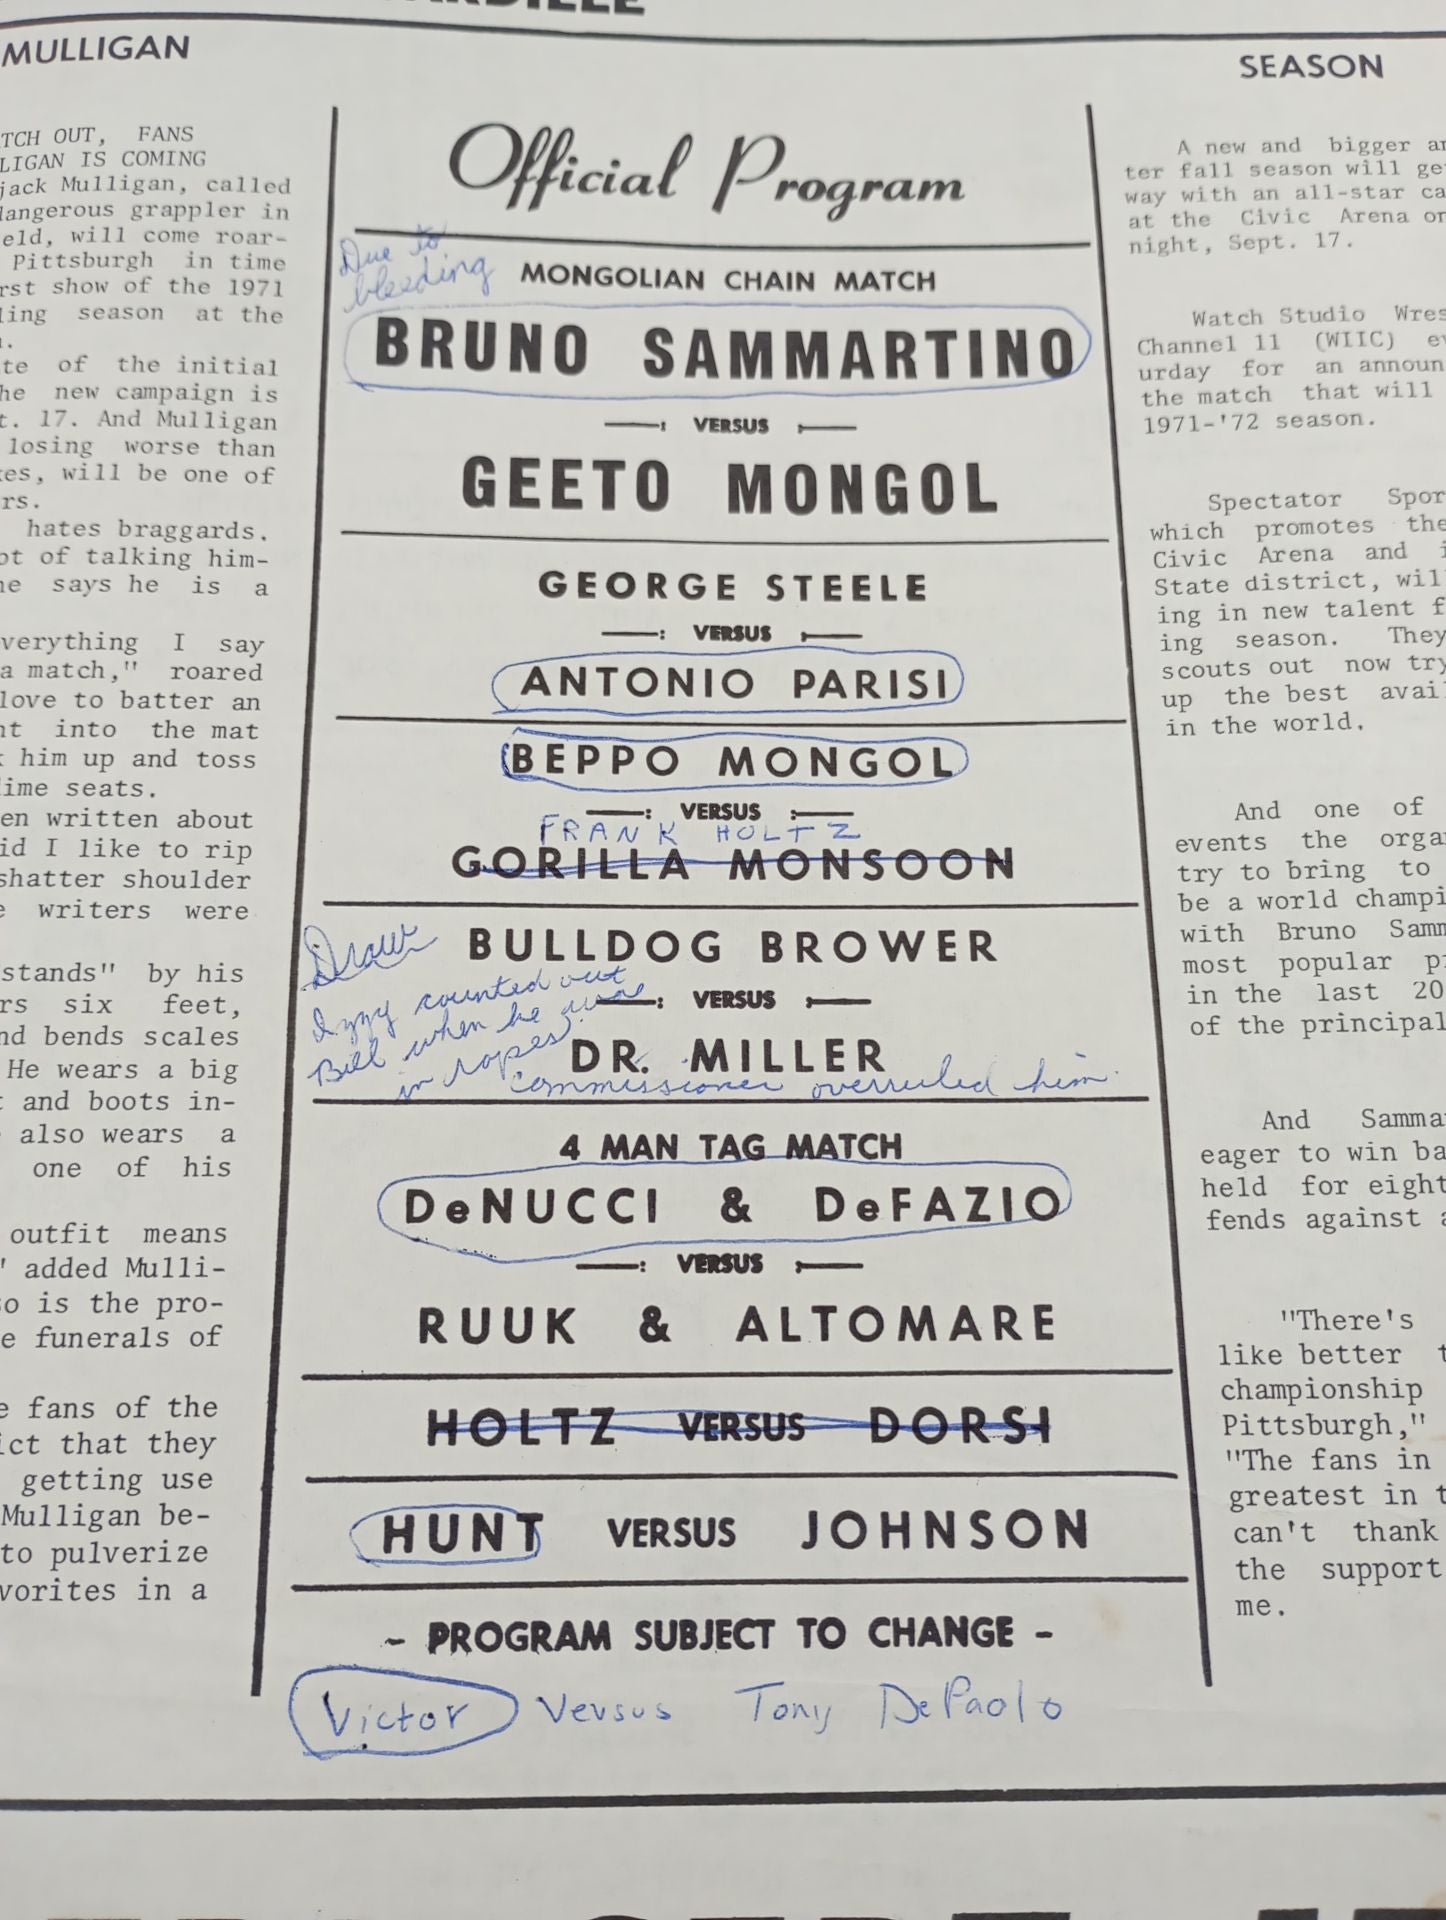 MULLIGAN
TCH OUT, FANS
LIGAN IS COMING
jack Mulligan, called
dangerous grappler in
eld, will come roar-
Pittsburgh in time
rst show of the 1971
ling season at the
te of the initial
he new campaign is
t. 17. And Mulligan
losing worse than
kes, will be one of
rs.
hates braggards.
ot of talking him-
he says he is a
verything I say
a match," roared
love to batter an
nt into the mat
k him up and toss
ime seats.
en written about
id I like to rip
shatter shoulder
e writers were
stands" by his
rs six feet,
nd bends scales
He wears a big
t and boots in-
also wears a
one of his
outfit means
" added Mulli-
so is the pro-
e funerals of
e fans of the
ict that they
getting use
Mulligan be-
to pulverize
vorites in a
Official Program
Due to
bleeding
MONGOLIAN CHAIN MATCH
BRUNO SAMMARTINO
VERSUS
GEETO MONGOL
GEORGE STEELE
VERSUS
ANTONIO PARISI
BEPPO MONGOL
VERSUS
FRANK HOLTZ
GORILLA MONSOON
Draw
BULLDOG BROWER
Izzy counted out
Bill when he was
in ropes.
VERSUS
DR. MILLER
Commissioner overruled him.
4 MAN TAG MATCH
DeNUCCI & DeFAZIO
VERSUS
RUUK & ALTOMARE
HOLTZ VERSUS DORSI
HUNT VERSUS JOHNSON
- PROGRAM SUBJECT TO CHANGE -
Victor Versus Tony DePaolo
SEASON
A new and bigger an
ter fall season will ge
way with an all-star ca
at the Civic Arena on
night, Sept. 17.
Watch Studio Wres
Channel 11 (WIIC) ev
urday for an announ
the match that will
1971-'72 season.
Spectator Spor
which promotes the
Civic Arena and i
State district, wil
ing in new talent f
ing season. They
scouts out now try
up the best avai
in the world.
And one of
events the orga
try to bring to
be a world champi
with Bruno Samm
most popular p
in the last 20
of the principal
And Samma
eager to win ba
held for eight
fends against a
"There's
like better t
championship
Pittsburgh,"
"The fans in
greatest in t
can't thank
the support
me.